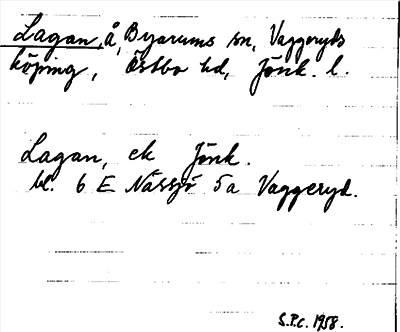 Lagan, å, Byarums sn, Vaggeryds
köping, Östbo hd, Jönk. l.
Lagan, ek Jönk.
bl. 6 E Nässjö 5a Vaggeryd.
S.P.c. 1958.